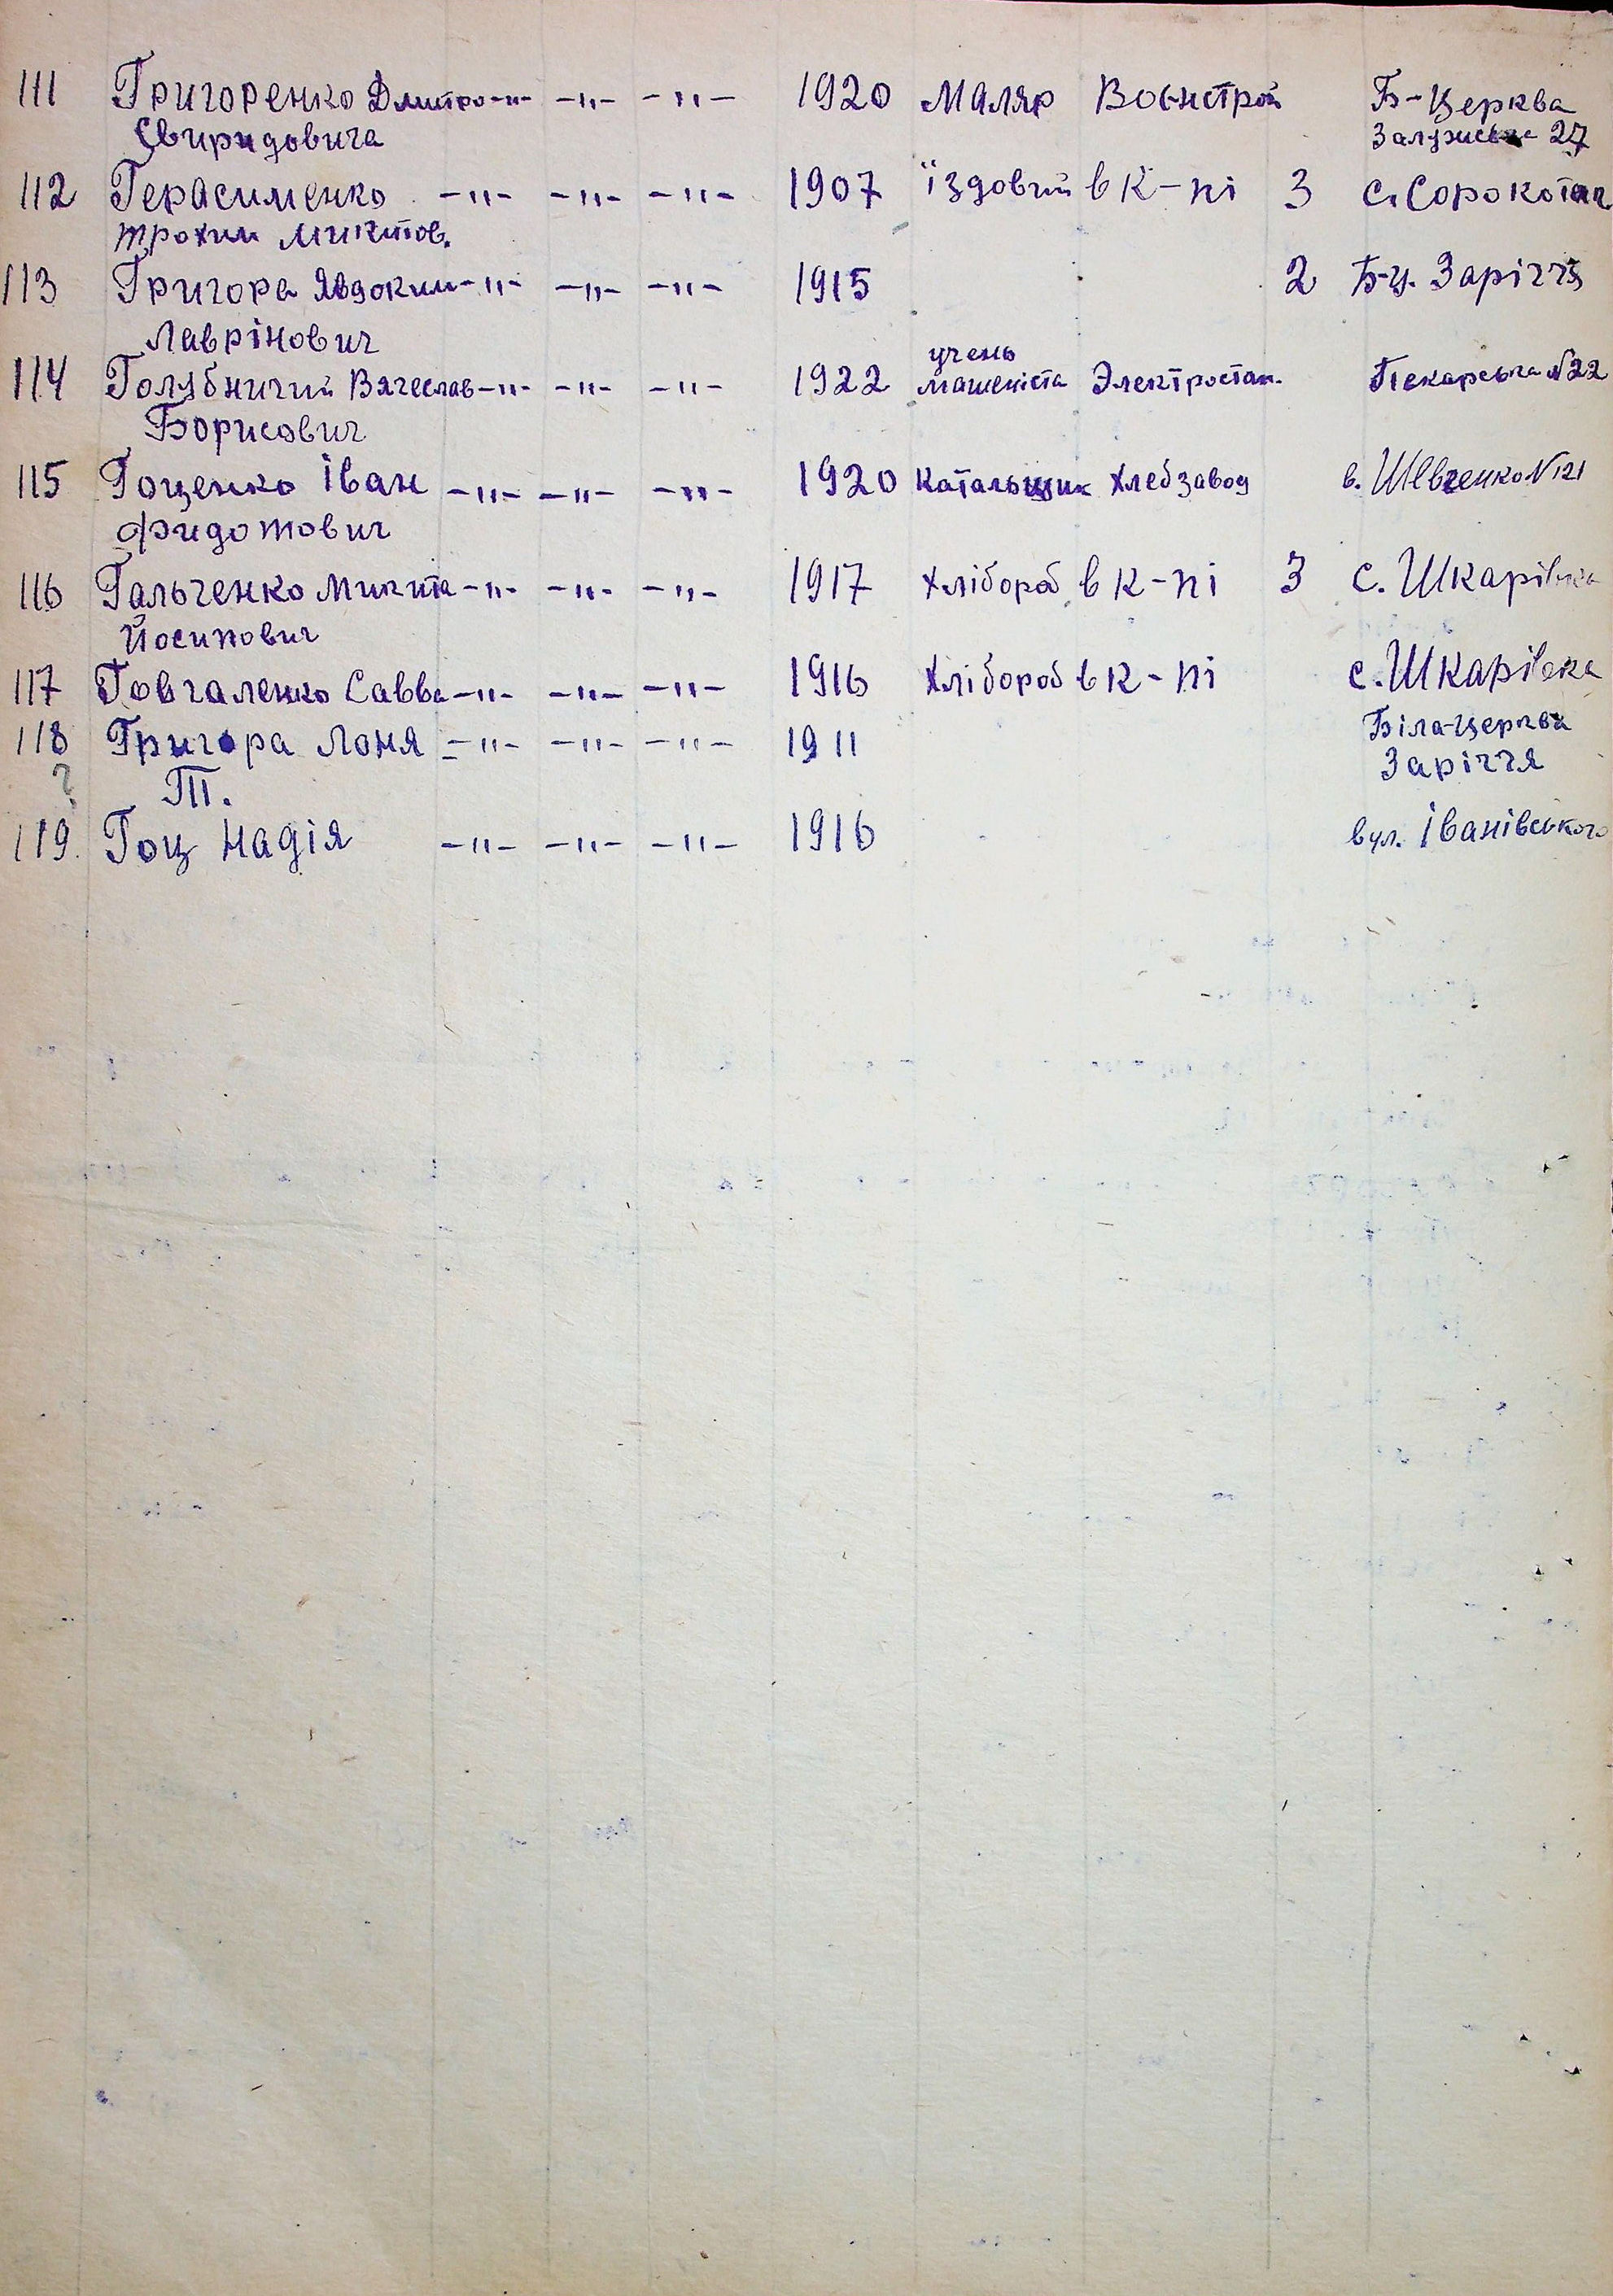 111 Григоренко Дмитро -"- -"- -"- 1920 Маляр Воєнстрой Б-Церква
Свиридовича 27
112 Герасименко -"- -"- -"- 1907 їздовий в к-пі 3 с.
трохим микитов.
113 Григора Явдоким -"- -"- -"- 1915 2 Б-ц. Заріччя
Лаврінович
учень
114 Голубничий Вячеслав -"- -"- -"- 1922 машеніста Электростан. Пекарська №22
Борисович
115 Гоценко Іван -"- -"- -"- 1920 Катальщик хлебзавод в. Шевченко №121
Фидотович
116 Гальченко Микита -"- -"- -"- 1917 хлібороб в к-пі 3 с. Шкарівка
Йосипович
117 Говгаленко Савва -"- -"- -"- 1916 Хлібороб в к-пі с. Шкарівка
118 Григора Лоня -"- -"- -"- 1911 Біла-Церква
? П. Заріччя
119. Гоц Надія -"- -"- -"- 1916 вул. Іванівського